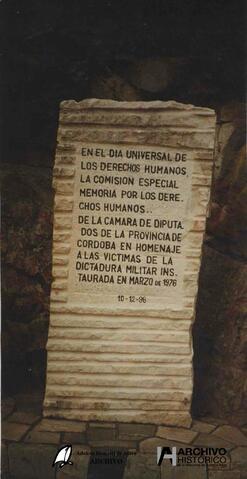 EN EL DIA UNIVERSAL DE
LOS DERECHOS HUMANOS,
LA COMISION ESPECIAL
MEMORIA POR LOS DERE_
CHOS HUMANOS..
DE LA CAMARA DE DIPUTA_
DOS DE LA PROVINCIA DE
CORDOBA EN HOMENAJE
A LAS VICTIMAS DE LA
DICTADURA MILITAR INS_
TAURADA EN MARZO DE 1976
10-12-96
ARCHIVO
ARCHIVO
HISTÓRICO